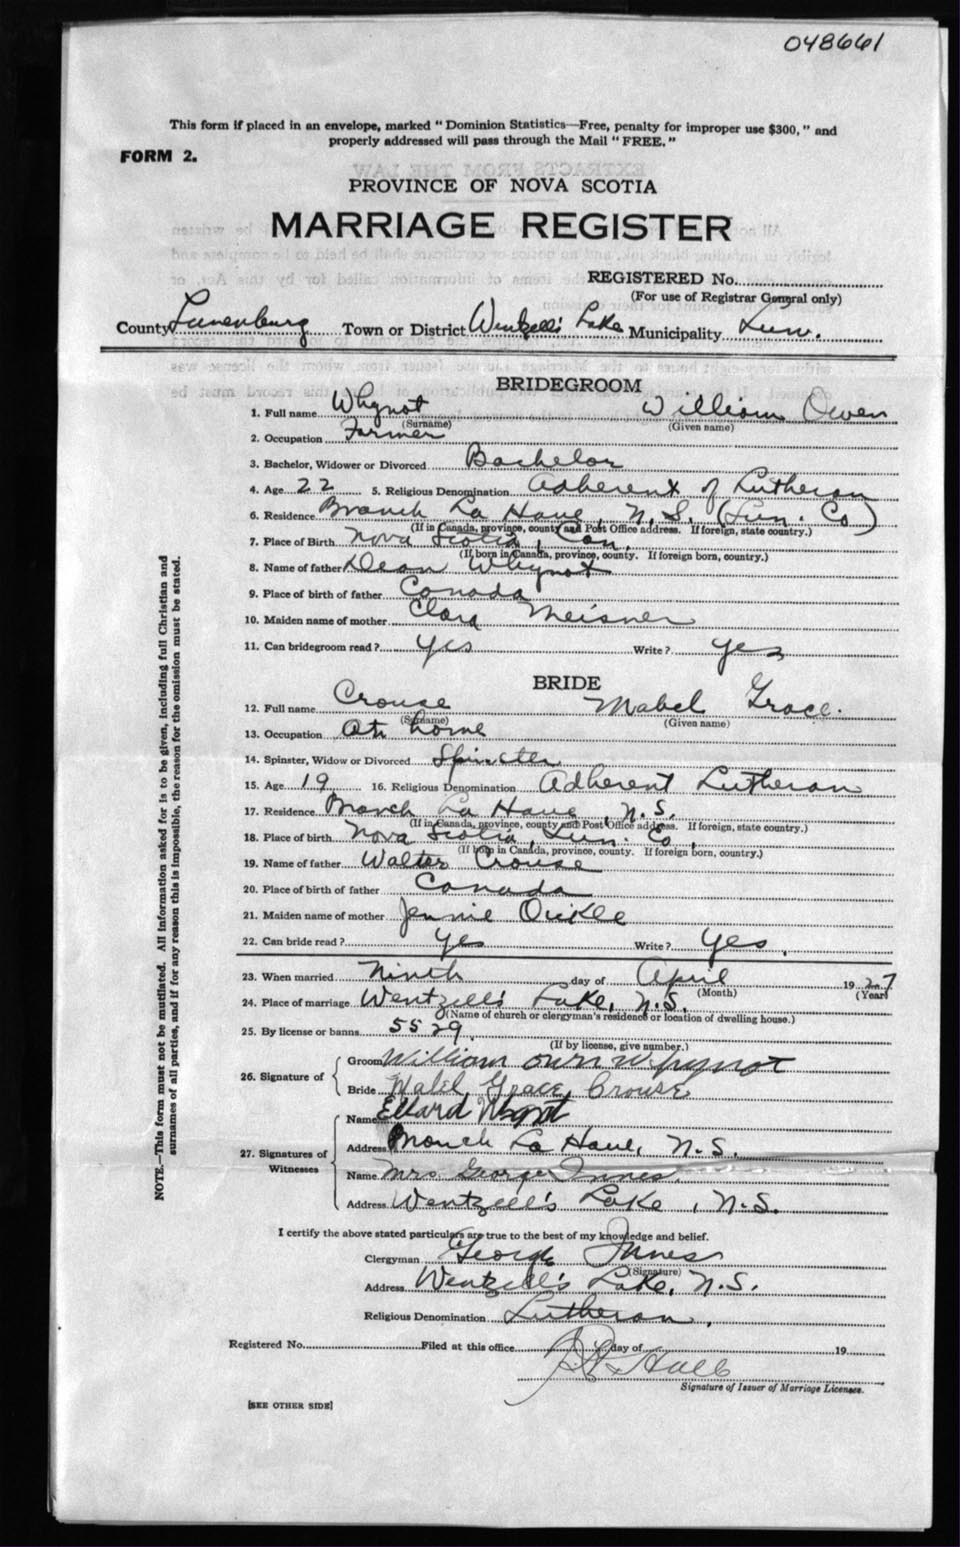 048661
This form if placed in an envelope, marked "Dominion Statistics—Free, penalty for improper use $300," and
properly addressed will pass through the Mail "FREE."
FORM 2.
PROVINCE OF NOVA SCOTIA
MARRIAGE REGISTER
REGISTERED No.
(For use of Registrar General only)
County Lunenburg Town or District Wentzell's Lake Municipality Lun.
BRIDEGROOM
1. Full name Whynot William Owen
(Surname) (Given name)
2. Occupation Farmer
3. Bachelor, Widower or Divorced Bachelor
4. Age 22 5. Religious Denomination Adherent of Lutheran
6. Residence Branch La Have, N.S. (Lun. Co)
(If in Canada, province, county and Post Office address. If foreign, state country.)
7. Place of Birth Nova Scotia, Can.
(If born in Canada, province, county. If foreign born, country.)
8. Name of father Dean Whynot
9. Place of birth of father Canada
10. Maiden name of mother Clara Meisner
11. Can bridegroom read? yes Write? yes
BRIDE
12. Full name Crouse Mabel Grace.
(Surname) (Given name)
13. Occupation At home
14. Spinster, Widow or Divorced Spinster
15. Age 19 16. Religious Denomination Adherent Lutheran
17. Residence Branch La Have, N.S.
(If in Canada, province, county and Post Office address. If foreign, state country.)
18. Place of birth Nova Scotia, Lun. Co.
(If born in Canada, province, county. If foreign born, country.)
19. Name of father Walter Crouse
20. Place of birth of father Canada
21. Maiden name of mother Jennie Oickle
22. Can bride read? yes Write? yes.
23. When married Ninth day of April 1927
(Month) (Year)
24. Place of marriage Wentzell's Lake, N.S.
(Name of church or clergyman's residence or location of dwelling house.)
25. By license or banns 5529
(If by license, give number.)
26. Signature of
Groom William Owen Whynot
Bride Mabel Grace Crouse
27. Signatures of Witnesses
Name Ellard
Address Branch La Have, N.S.
Name Mrs. George Innes.
Address Wentzell's Lake, N.S.
I certify the above stated particulars are true to the best of my knowledge and belief.
Clergyman George Innes
(Signature)
Address Wentzell's Lake, N.S.
Religious Denomination Lutheran.
Registered No. Filed at this office day of 19
Signature of Issuer of Marriage Licenses.
[SEE OTHER SIDE]
NOTE.—This form must not be mutilated. All information asked for is to be given, including full Christian and
surnames of all parties, and if for any reason this is impossible, the reason for the omission must be stated.